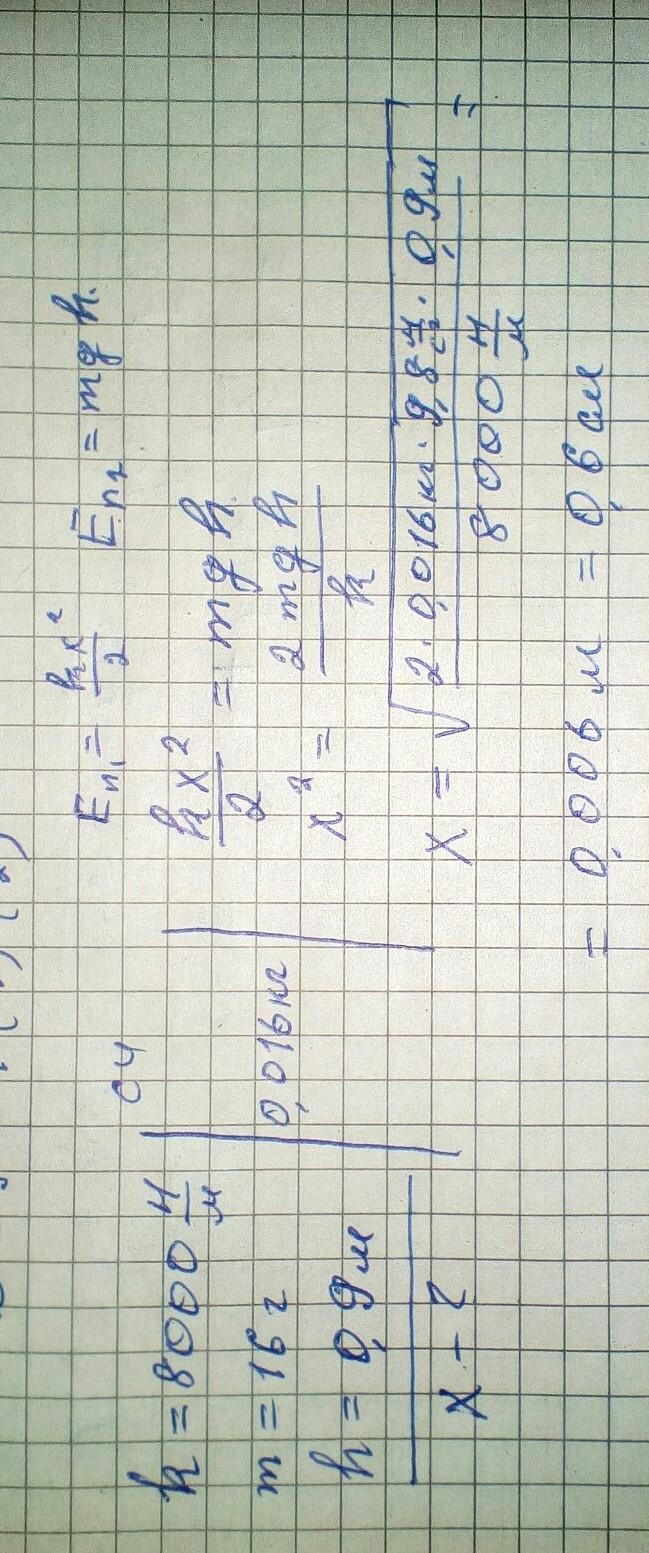 k = 8000 Н/м
m = 16 г
h = 0,9 м
x - ?
СИ
0,016 кг
Eп₁ = kx²/2 Eп₂ = mgh.
kx²/2 = mgh.
x² = 2mgh/k
x = √(2·0,016кг·9,8 Н/кг·0,9м / 8000 Н/м) =
= 0,006 м = 0,6 см